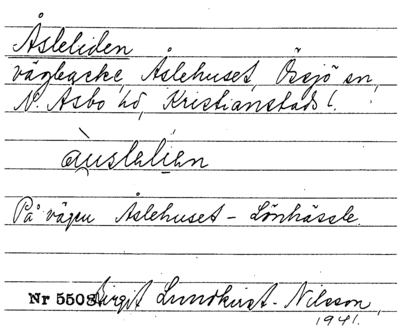 Åsleliden
vägbacke, Åslehuset, Össjö sn,
N. Åsbo hd, Kristianstads l.
På vägen Åslehuset - Lönhässle.
Nr 5508 Birgit Lundkvist-Nilsson,
1941.